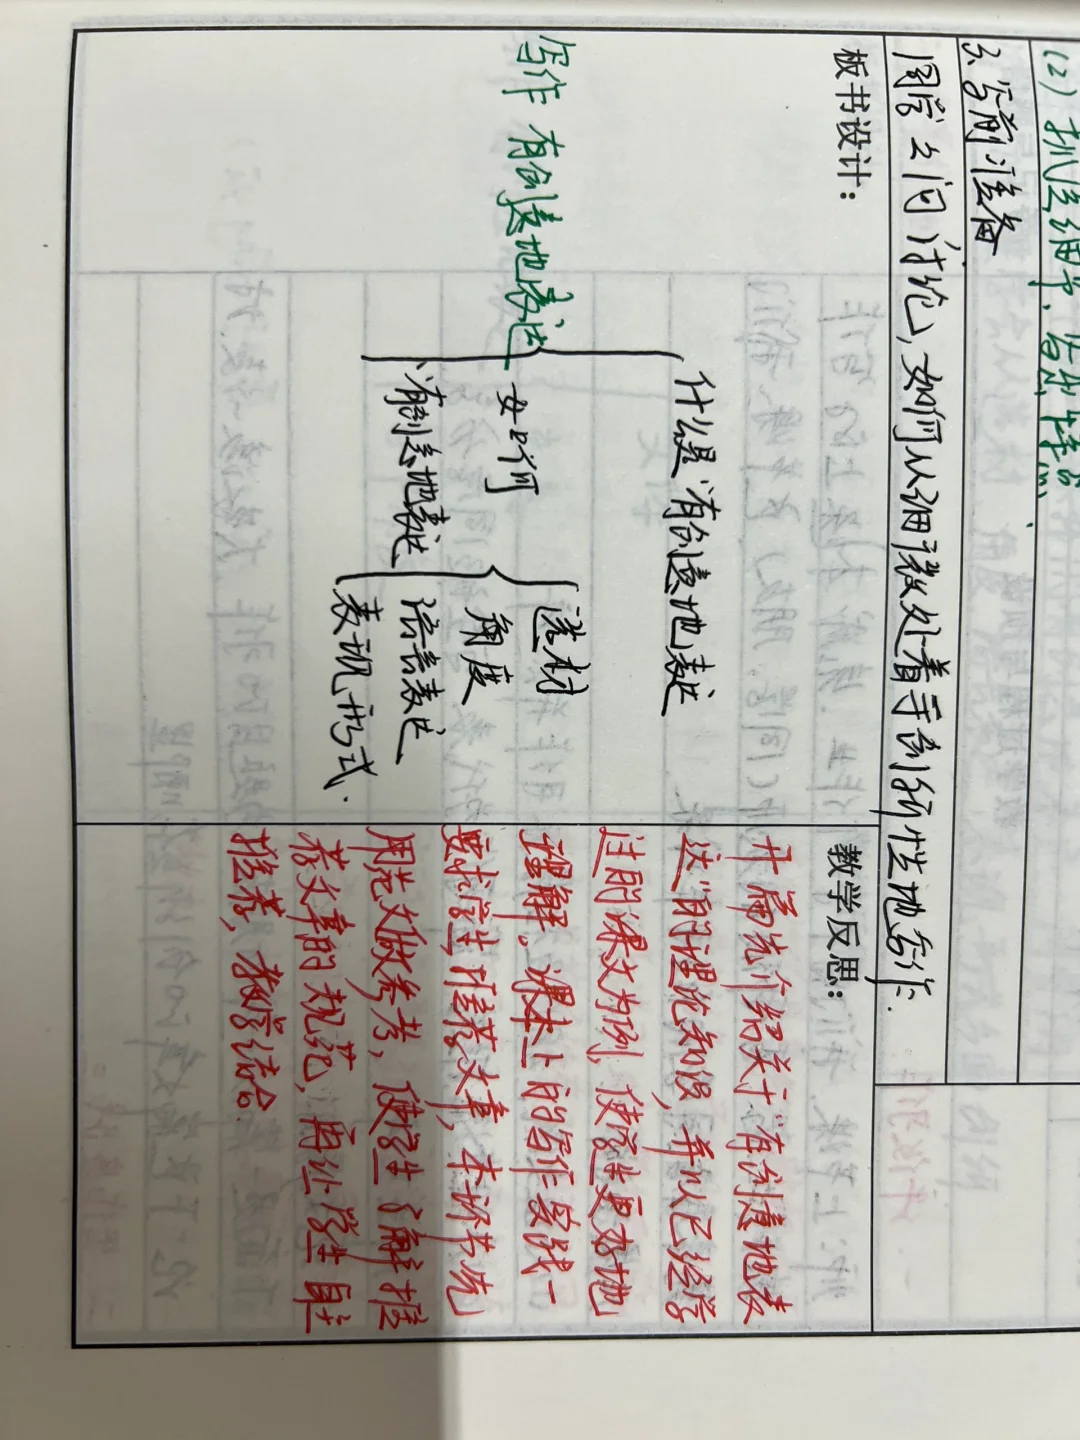 (2) 抓住细节，写出特点
3、写前准备
同学之间讨论，如何从细微处着手创新性地写作.
板书设计：
写作 有创意地表达
什么是“有创意地表达
如何
“有创意地表达
选材
角度
语言表达
表现形式.
教学反思：
开篇先介绍关于“有创意地表
达”的理论知识，并以已经学
过的课文为例，使学生更好地
理解。课本上的写作实践一
要求学生推荐文章，本评节先
用范文做参考，使学生了解推
荐文章的规范，再让学生自主
推荐，教学结合.